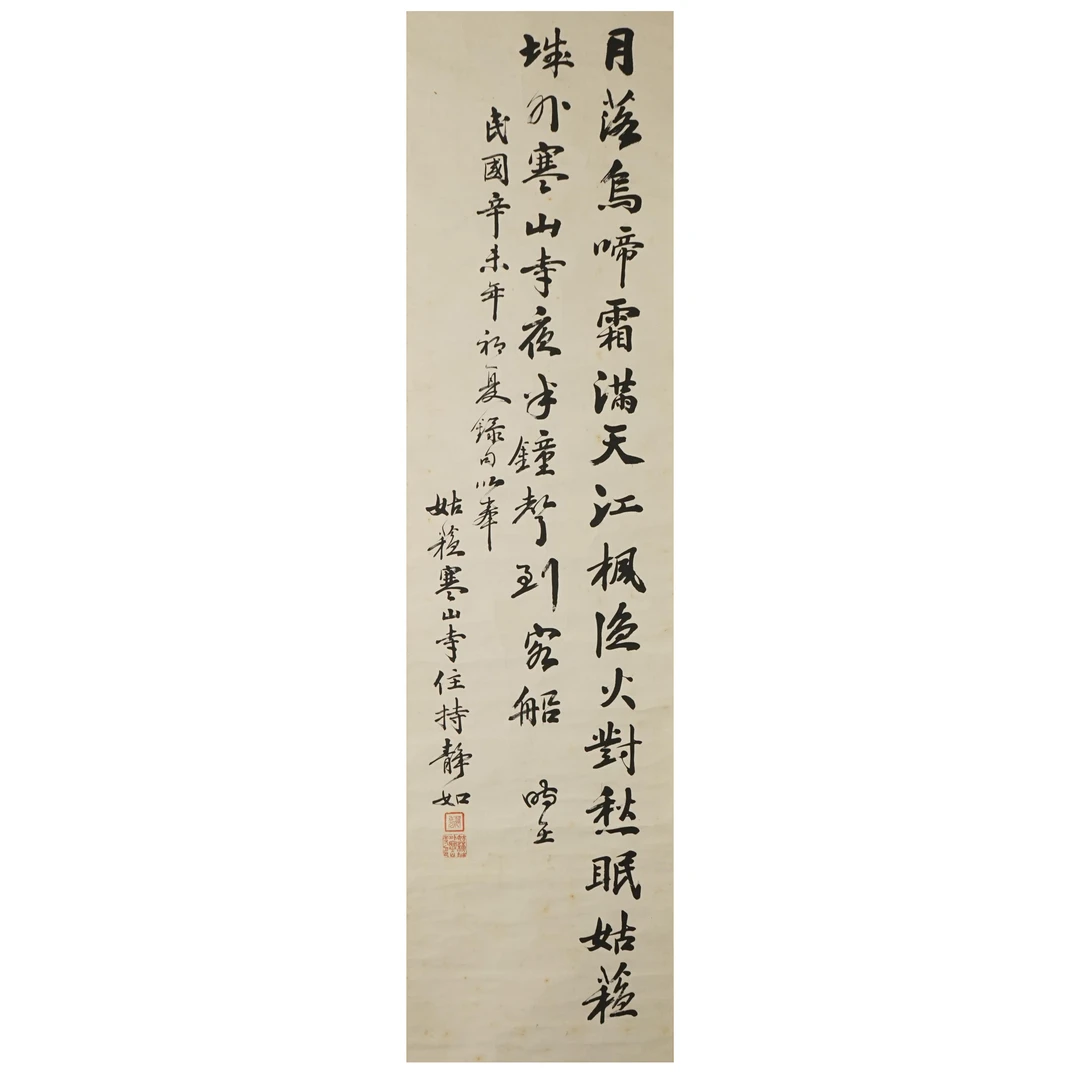 月落烏啼霜滿天江楓漁火對愁眠姑蘇
城外寒山寺夜半鐘聲到客船 時在
民國辛未年初夏錄句以奉
姑蘇寒山寺住持靜如